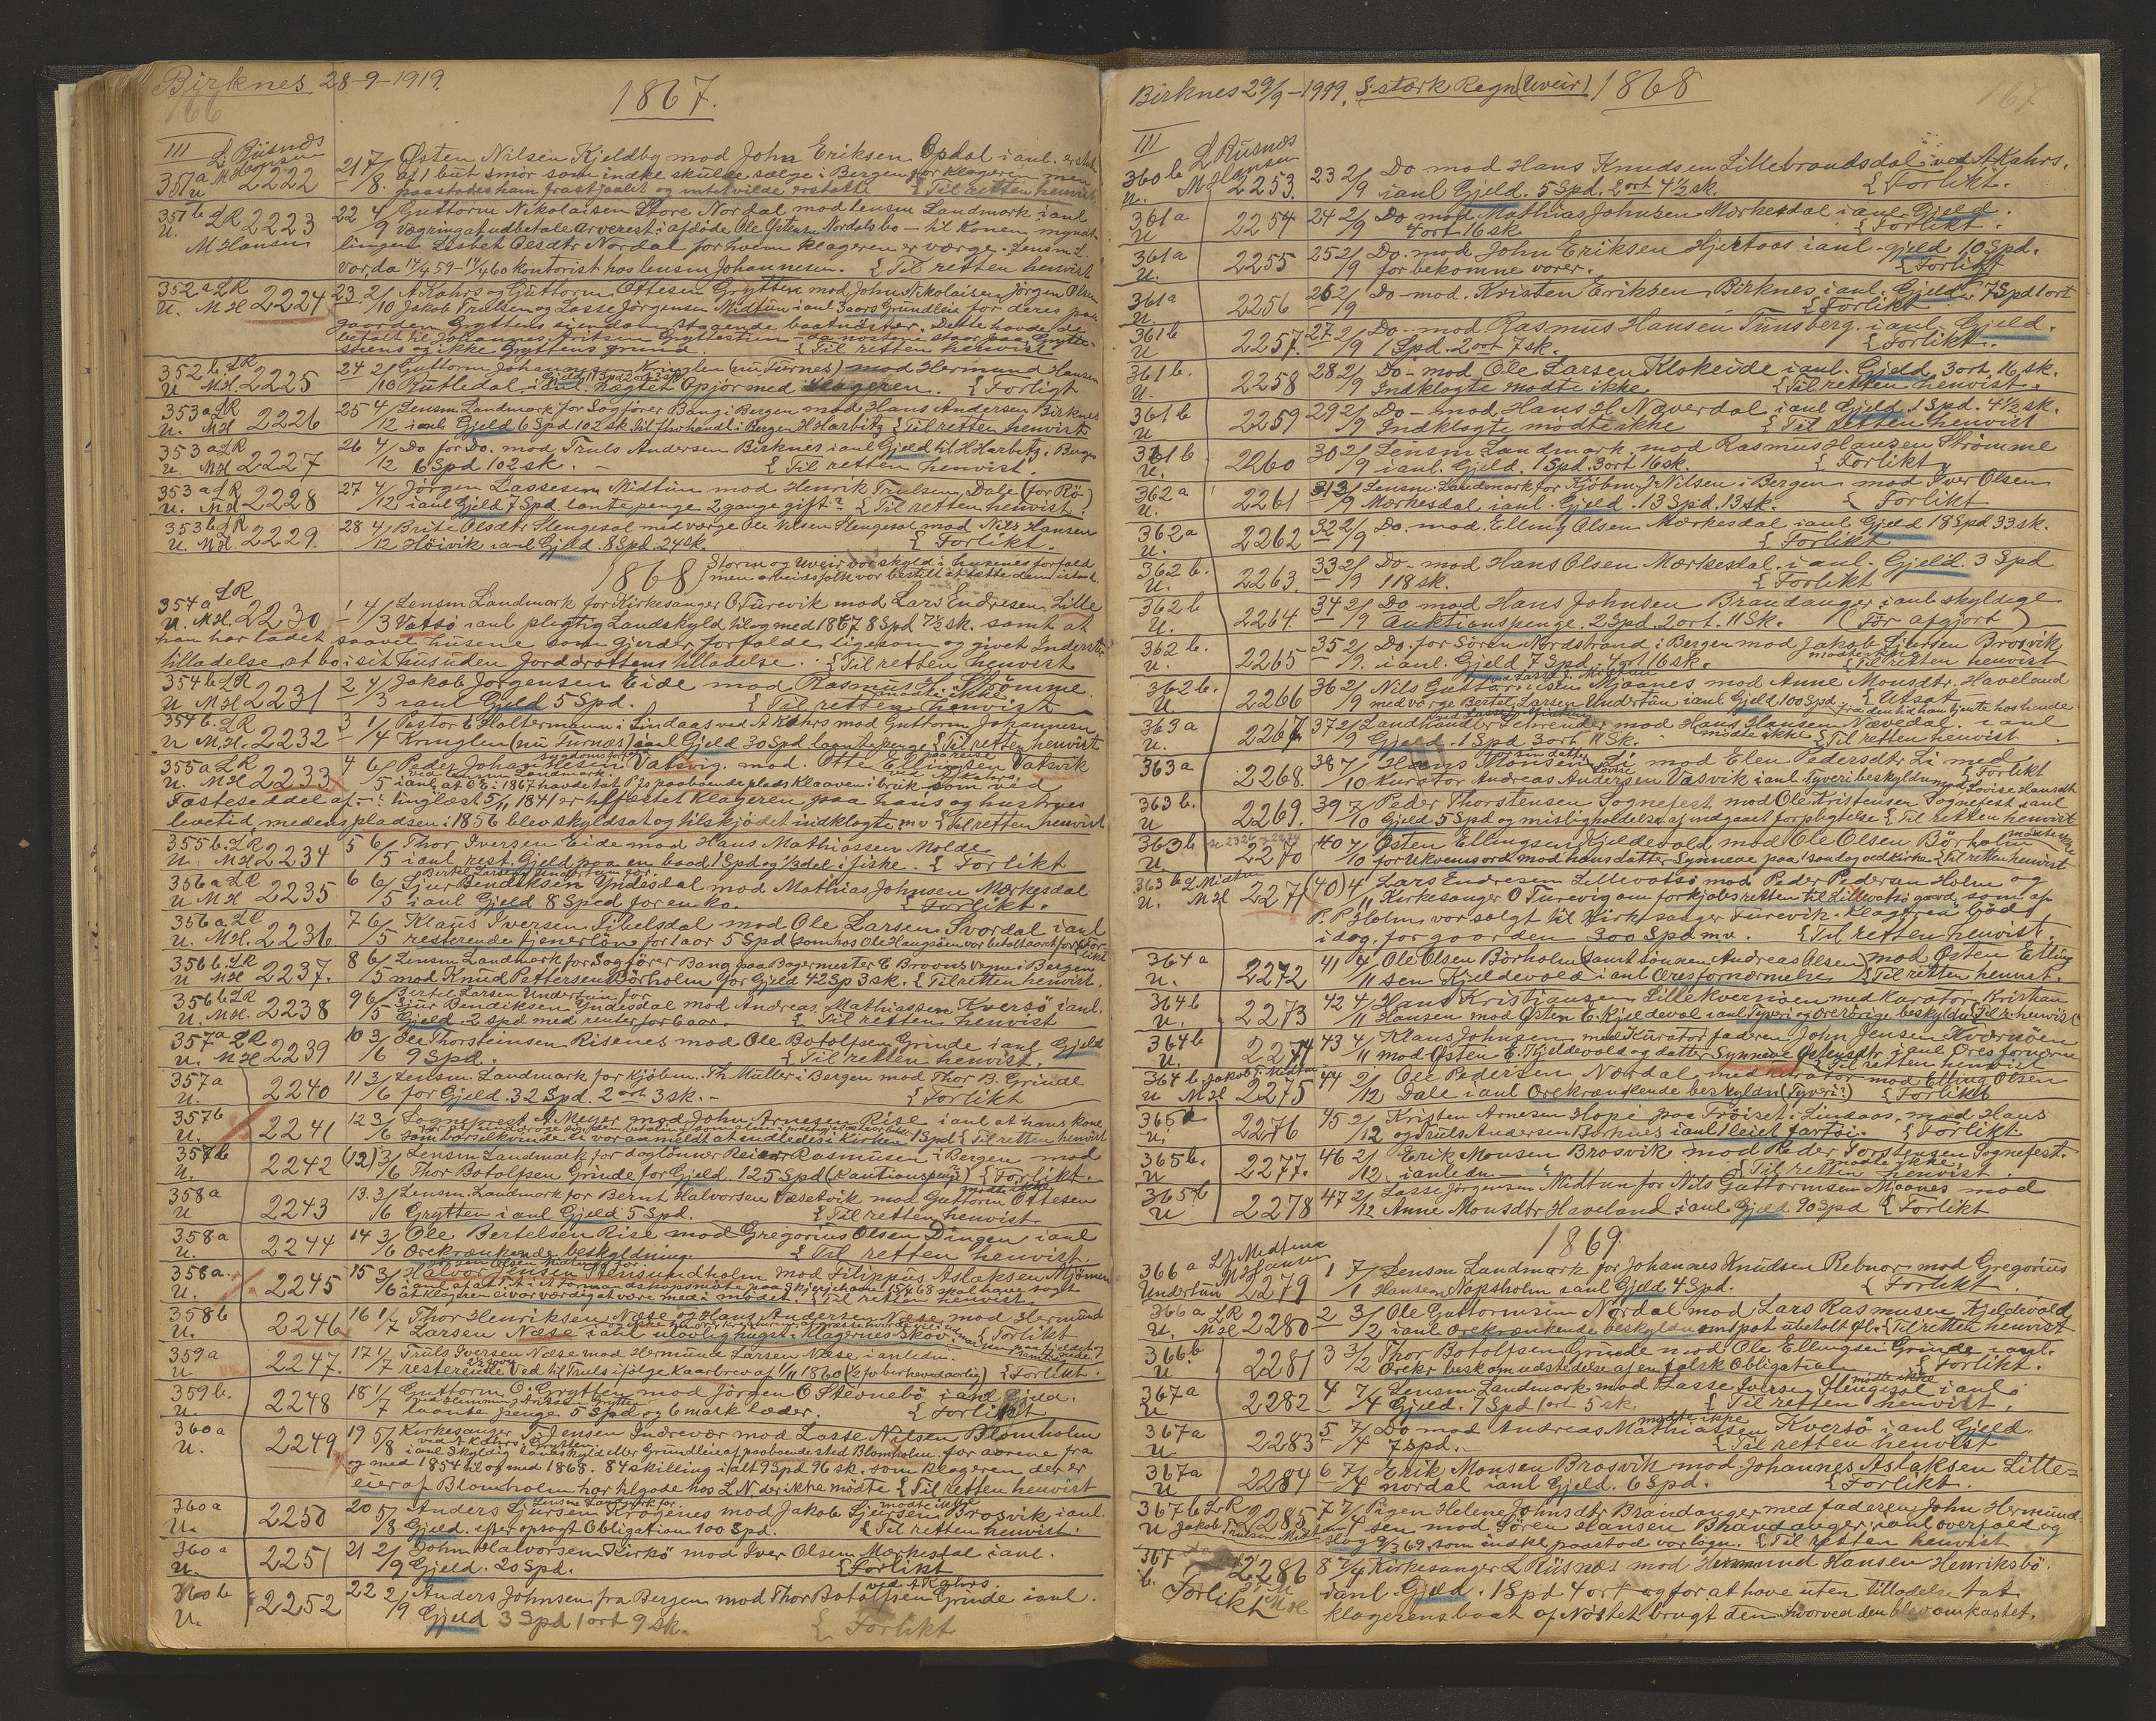 Birknes 28-9-1919.
166
1867.
III L Rüsnæs
M Hansen
351a u. 2222 21 7/8. Østen Nilsen Kjeldby mod John Eriksen Opdal i anl. erstat
af 1 but smør som indkl skulde sælge i Bergen for klageren men
paastodes ham frastjaalet og intet vilde erstatte { Til retten henvist
351b LR 2223 22 4/9 Guttorm Nikolaisen Store Nordal mod lensm Landmark i anl
u. M Hansen vægring af udbetale arverest i afdøde Ole Østensn Nordals bo – til konen, myndt-
lingen Lisbet Olsdtr Nordal for hvem klageren er værge. Lensm L.
var da 14/4 59 – 14/4 60 kontorist hos lensm Johannesen. { Til retten henvist
352a LR
U. MH 2224 23 2/10 A Kahrs og Guttorm Ottesen Grytten mod John Nikolaisen, Jörgen Olsen
Jakob Trulsen og Lasse Jörgensen Midtün i anl 3 aars Grundleie for deres paa
gaarden Gryttens eiendom staaende baatnöster. Dette havde de
befalt til Johannes Aritsen Gryttestien – da nöstene staar paa Grytte-
stiens og ikke Gryttens grund. { Til retten henvist
352b. LR
U. MH. 2225 24 2/10 Guttorm Johannesen Kringlen (nu Türnes) mod Hermund Hansen
Rutledal i anl. nægtet Opgjør med klageren. { Forligt
353a LR
U. MH 2226 25 4/12 Lensm Landmark for Sagfører Bang i Bergen mod Hans Andersen Birknes
i anl Gjeld 6 Spd 102 sk. til Thorhandl i Bergen H Harbitz { Til retten henvist
353a LR
u. MH 2227 26 4/12 Do for Do. mod Truls Andersen Birknes i anl Gjeld til H Harbitz. Bergen
6 Spd 102 sk. – { Til retten henvist.
353a LR
u. MH 2228 27 4/12 Jörgen Lassesen Midtün mod Henrik Trulsen Dale (før Rö-)
i anl Gjeld 7 Spd lante penge 2 gange gift? { Til retten henvist.
353b LR
U. MH. 2229. 28 4/12 Brite Olsdtr Stengesol med værge Ole Nilsen Stengesol mod Nils Hansen
Höivik i anl Gjeld. 8 Spd. 24 sk. { Forlikt.
1868 { Storm og Uveir var skyld i husenes forfald
men arbeidsfolk var bestilt at sætte dem istand.
354a LR
U. MH. 2230 1 4/3 Lensm Landmark for Kirkesanger O Türevik mod Lars Endresen Lille
Vatsö i anl pligtig Landskyld til og med 1867 8 Spd 7½ sk. samt at
han har ladet saavel husene som gjerder forfalde, ligesom og givet Inderster
tilladelse at bo i sit hus uden Jorddrottens tilladelse. { Til retten henvist
354b LR
U MH 2231 2 4/3 Jakob Jørgensen Eide mod Rasmus H Strømme
i anl Gjeld 5 Spd. mödte ikke { Til retten henvist
354b. LR
U M.H. 2232 3 1/4 Pastor E Haltermann i Lindaas ved A Kahrs mod Guttorm Johannesen
Kringlen (nu Turnæs) i anl Gjeld 30 Spd laante penge { Til retten henvist
355a LR
U. MH 2233 4 6/5 Peder Johannesen Vatsvig. mod. Otte Ellingsen Vatsvik
ved lensm Landmark. ved A Kahrs.
i anl. at O E i 1867 havde tat P Js paaboende plads Klaaven i bruk som ved
Fæsteseddel af – tinglæst 5/11 1841 er bestet klageren paa hans og hustrues
levetid, medens pladsen i 1856 blev skyldsat og tilskjødet indklagte m.v { Til retten henvist
355b. LR
U. MH 2234 5 6/5 Thor Iversen Eide mod Hans Mathiassen Molde
i anl. rest. Gjeld paa en baad 1 Spd og ½ del i fiske. { Forlikt
356a LR
U MH 2235 6 6/5 Bertel Larsen Undertun for
Sjur Bendiksen Yndesdal mod Mathias Johnsen Mærkesdal
i anl Gjeld 8 Spcd for en ko. { Forlikt.
356a LR
U. MH. 2236 7 6/5 Klaus Iversen Tibelsdal mod Ole Larsen Svordal i anl
resterende tjenerlön for 1 aar 5 Spd (som hos Ole Haugsøen var betalt aaret før { Forlikt
356b. LR
U. MH 2237. 8 6/5 Lensm Landmark for Sagfører Bang paa Bagermester E Broons vegne i Bergen
mod Knud Pettersen Börholm for Gjeld 42 Sp 3 sk. { Til retten henvist.
356b LR
U. MH. 2238 9 6/5 Bertel Larsen Undertun for
Sjur Bendiksen Yndesdal mod Andreas Mathiassen Kversö i anl.
Gjeld. 2 spd med renter for 6 aar. { Til retten henvist
357a LR
U. MH 2239 10 3/6 Ole Thorsteinsen Risenes mod Ole Botolfsen Grinde i anl Gjeld
9 Spd. { Til retten henvist.
357a
u. 2240 11 3/6 Lensm. Landmark for Kjöbm. Th Müller i Bergen mod Thor B. Grinde
for Gjeld. 32 Spd. 2 ort 3 sk. – { Forlikt
357b
U. 2241 12 3/6 Sogneprest A M Meyer mod John Arnesen Rise i anl at hans kone
som barselkvinde ei var anmeldt at indledes i Kirken 1 Spd { Til retten henvist
357b
U. 2242 (12) 3/6 Lensm Landmark for daglönner Reier Rasmusen i Bergen mod
Thor Botolfsen Grinde for Gjeld. 125 Spd (Kautionspenge) { Forlikt.
358a
U 2243 13. 3/6 Lensm. Landmark for Bernt Halvorsen Væsetvik mod Guttorm Ottesen
Grytten i anl Gjeld 5 Spd. mödte ikke { Til retten henvist
358a
U. 2244 14 3/6 Ole Bertelsen Rise mod Gregorius Olsen Dingen i anl
Ørekrænkende beskyldning. { Til retten henvist.
358a.
U. 2245 15 3/6 Halvor Jensen Stensundholm mod Filippus Aslaksen Mjömen
at klageren ei var værdig at være med i mødet. { Til retten henvist.
358b
U. 2246 16 1/7 Thor Henriksen Næse og Hans Andersen Næse mod Hermund
Larsen Næse i anl ulovlig hugst i Klagernes Skov. { Forlikt
359a
U 2247. 17 1/7 Truls Iversen Næse mod Hermund Larsen Næse i anledn.
resterende Ved til Truls ifølge Kaarbrev af 1/11 1860 { Forlikt.
359b.
u. 2248 18 1/7 Guttorm O. Grytten mod Jörgen O Stevnebö i anl Gjeld.
laante penge 5 Spd og 6 mark læder. { Forlikt
360a
U. 2249 19 5/8 Kirkesanger T Jensen Indrevær mod Lasse Nilsen Blomholm
ved A Kahrs Grytten
i anl Skyldig Landskyld eller Grundleie af paaboende sted Blomholm. for aarene fra
og med 1854 til og med 1865. 84 skilling ialt 9 Spd 96 sk. som klageren der er
eier af Blomholm har tilgode hos L N der ikke mødte { Til retten henvist
360a
U. 2250 20 5/8 Lensm Landmark for
Anders Sjursen Krogenes mod Jakob Sjursen Brosvik i anl.
Gjeld. efter opsagt Obligation 100 Spd. mödte ikke { Til retten henvist.
360a
U. 2251 21 2/9 John Halvorsen Kirkö mod Iver Olsen Mærkesdal i anl.
Gjeld. 20 Spd. { Forlikt
360b
U. 2252 22 2/9 Anders Johnsen fra Bergen mod Thor Botolfsen Grinde i anl.
ved A Kahrs
Gjeld 3 Spd 1 ort 9 sk. { Forlikt
Birknes 29/9–1919. S. stærk Regn (Uveir) 1868
167
III
360b L Rüsnæs
U. M Hansen 2253. 23 2/9 Do mod Hans Knudsen Lillebrandsdal ved A Kahrs.
i anl Gjeld. 5 Spd. 2 ort 4½ sk. { Forlikt.
361a
U 2254 24 2/9 Do. mod Mathias Johnsen Mærkesdal i anl. Gjeld.
4 ort 16 sk { Forlikt.
361a
U. 2255 25 2/9 Do. mod John Eriksen Hjertaas i anl. gjeld 10 Spd.
for bekomne varer. { Forlikt
361a
U. 2256 26 2/9 Do mod. Kristen Eriksen Birknes i anl. Gjeld. 7 Spd 1 ort
{ Forlikt
361b
U 2257. 27 2/9 Do – mod Rasmus Hansen Tünsberg. i anl. Gjeld.
1 Spd. 2 ort 7 sk. { Forlikt.
361b.
U. 2258 28 2/9 Do – mod Ole Larsen Klokeide i anl. Gjeld 3 ort 16 sk.
Indklagte mødte ikke. { Til retten henvist.
361b
U 2259 29 2/9 Do – mod Hans H Næverdal i anl Gjeld 1 Spd. 4½ sk.
Indklagte mødte ikke { Til retten henvist
361b.
U. 2260 30 2/9 Lensm Landmark mod Rasmus Hansen Strømme
i anl. Gjeld. 1 Spd. 3 ort 16 sk. { Forlikt
362a
U. 2261 31 2/9 Lensm. Landmark for Kjöbm J Nilsen i Bergen mod Iver Olsen
Mærkesdal i anl. Gjeld. 13 Spd. 13 sk. { Forlikt
362a
U. 2262 32 2/9 Do. mod. Elling Olsen Mærkesdal i anl Gjeld 18 Spd 33 sk.
{ Forlikt
362b.
U. 2263 33 2/9 Do – mod Hans Olsen Mærkesdal. i anl. Gjeld. 3 Spd
118 sk. { Forlikt
362b
U. 2264. 34 2/9 Do mod Hans Johnsen Brandanger i anl skyldige
Auktionspenge. 2 Spd. 2 ort. 11 Sk. (før afgjort)
362b.
u. 2265 35 2/9. Do. for Sören Nordstrand i Bergen mod Jakob Sjursen Brosvik
i anl. Gjeld 7 Spd. 1 ort 16 sk. mødte ikke { Til retten henvist
362b.
U 2266 36 2/9 Nils Guttormsen Mjaanes mod Anne Monsdtr. Haveland
med værge Bertel Larsen Undertün i anl Gjeld 100 Spd { Utsat
fra den tid han tjente hos hende
363a
U. 2267. 37 2/9 mod Hans Hansen Nævedal. i anl
Gjeld. 1 Spd 3 ort 11 Sk. mødte ikke { Til retten henvist
363a
2268. 38 7/10 Hans Monsen Li mod Elen Pedersdtr Li med
Kurator Andreas Andersen Vasvik i anl Tyveri beskyldn mod Lovise Hansdtr { Forlikt
363b.
U 2269. 39 7/10 Peder Thorstensen Sognefest mod Ole Kristensen Sognefest i anl
Gjeld 5 Spd og misligholdelse af indgaaet forpligtelse { Til retten henvist
363b
U. 2270 40 7/10 Østen Ellingsen Kjeldevold mod Ole Olsen Börholm mødte ikke
for Ukvemsord mod hans datter Synneve paa 1 søndag ved kirke { Til retten henvist
363b L Midtun
U. MH 2271 (40) 4/11 Lars Endresen Lillevatsö mod Peder Pedersen Holm og
Kirkesanger O Turevig om forkjøbsretten til Lillevatsö gaard, som af
P. P. Holm var solgt til Kirkesanger Turevik. Klageren bød
i dag for gaarden 300 Spd m.v. { Til retten henvist.
364a
U. 2272 41 4/11 Ole Olsen Börholm (samt sönnen Andreas Olsen) mod Østen Elling-
sen Kjeldevold i anl Øresfornærmelse { Til retten henvist.
364b
U. 2273 42 4/11 Hans Kristjansen Lillekvernöen med Kurator Kristian
Hansen mod Østen E. Kjeldevol i anl Tyveri og ørerørige beskyldn { Til r. henvist
364b
U. 2274 43 4/11 Klaus Johnsen med Kurator faderen John Jensen Kvernöen
mod Østen E. Kjeldevold og datter Synneve Østensdtr i anl Øresfornærm
{ Til retten henvist
364b Jakob T. Midtun
U MH 2275 44 2/12 Ole Pedersen Nordal med kurator mod Elling Olsen
Dale i anl Ørekrænkende beskyldn (Tyveri) { Forlikt
365a
U. 2276 45 2/12 Kristen Arnesen Hope paa Fröiset i Lindaas, mod Hans
og Truls Andersen Börknes i anl 1 leiet fartöi. { Forlikt
365b.
U 2277. 46 2/12 Erik Monsen Brosvik mod Peder Torstensen Sognefest.
i anledn – mødte ikke. { Til retten henvist
365b
U 2278 47 2/12 Lasse Jörgensen Midtun for Nils Guttormsen Mjaanes mod
Anne Monsdtr Haveland i anl Gjeld 90 Spd { Forlikt
1869.
366a L J Midtun
Undertun M Hansen 2279 1 7/1 Lensm Landmark for Johannes Knudsen Rebnor mod Gregorius
Hansen Napsholm i anl Gjeld 4 Spd. { Forlikt
366a LR
U. MH 2280 2 3/2 Ole Guttormsen Nordal mod Lars Rasmusen Kjeldevold
i anl ørekrænkende beskyldn om 1 pot ubetalt Øl. { Til retten henvist
366b
U 2281 3 3/2 Thor Botolfsen Grinde mod Ole Ellingsen Grinde i anl.
Ørekr besk om udstedelse af en falsk Obligation { Forlikt.
367a
U 2282 4 7/4 Lensm Landmark mod Lasse Iversen Stengesol i anl
Gjeld. 7 Spd 1 ort 5 sk. mødte ikke { Til retten henvist.
367a
U 2283 5 7/4 Do mod Andreas Mathiassen Kversö i anl Gjeld.
7 Spd. – mødte ikke { Til retten henvist
367a
U 2284 6 7/4 Erik Monsen Brosvik mod Johannes Aslaksen Lille-
nordal i anl Gjeld. 6 Spd. { Forlikt.
367b LR
U Jakob Trulsen Midtun 2285 7 7/4 Pigen Helene Johnsdtr Brandanger med faderen John Hermund-
sen mod Sören Hansen Brandanger i anl overfald og
slag 9/3 69, som indkl paastod var løgn. { Til retten henvist
367
b. 2286 8 7/4 Kirkesanger L Rüsnæs mod Hermund Hansen Henriksbö.
Forlikt MH i anl Gjeld. 1 Spd 4 ort og for at have uten tilladelse tat
klagerens baat af Nöstet brugt den hvorved den blev omkastet.